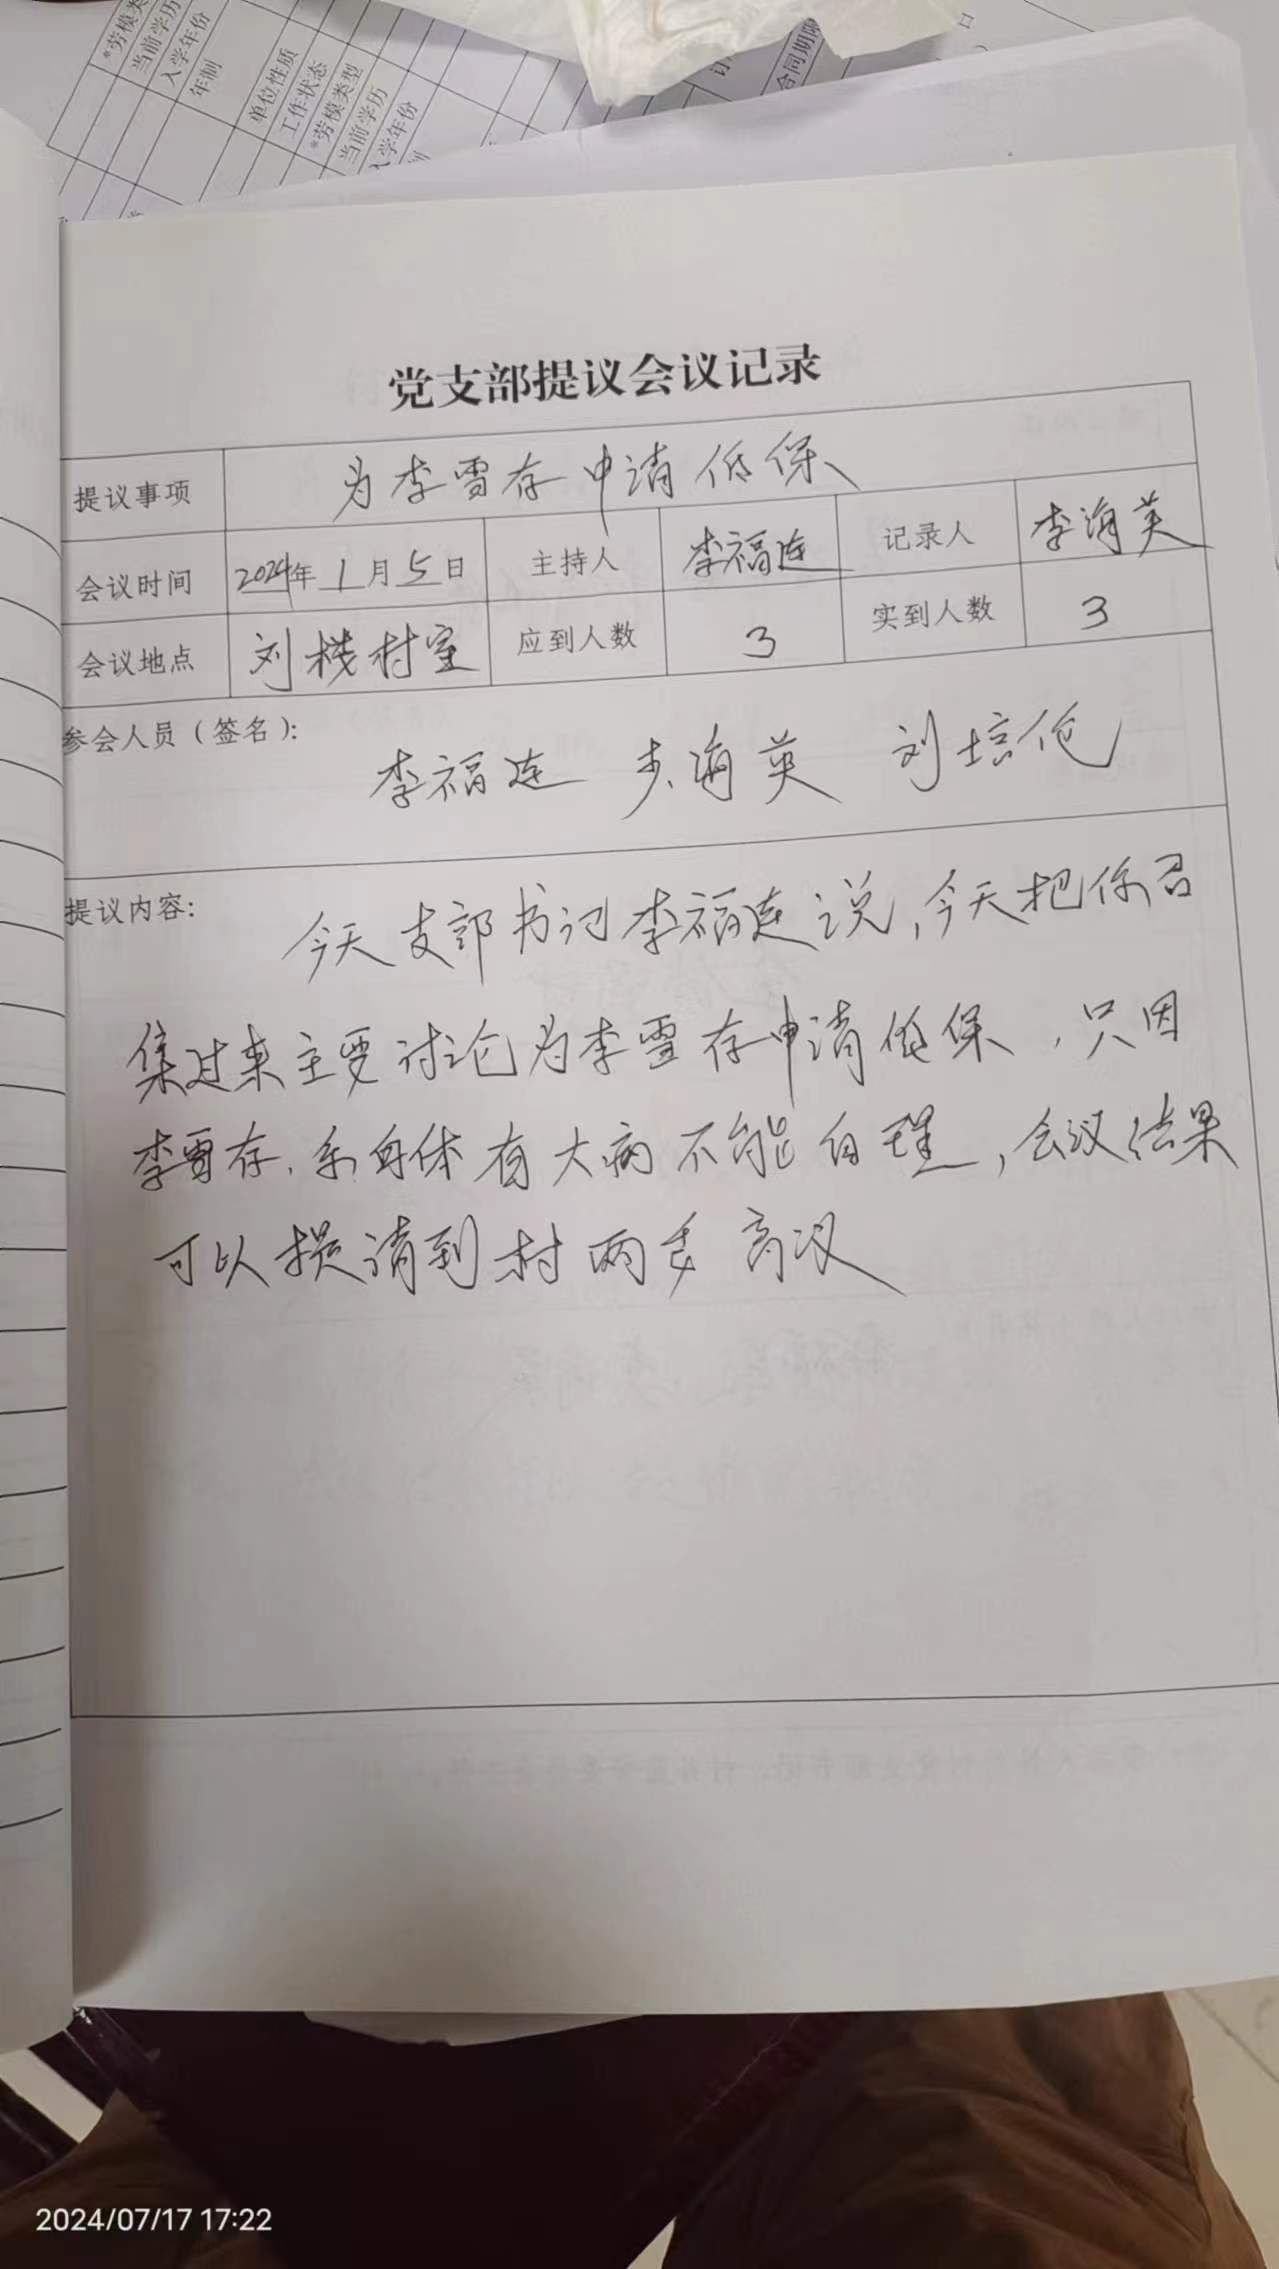 *劳模类
当前学历
入学年份
年制
单位性质
工作状态
*劳模类型
当前学历
入学年份
合同期限
党支部提议会议记录
提议事项 为李雪存申请低保
会议时间 2024年1月5日 主持人 李福连 记录人 李海英
会议地点 刘栈村室 应到人数 3 实到人数 3
参会人员（签名）：
李福连 李海英 刘培伦
提议内容：
今天支部书记李福连说，今天把你召
集过来主要讨论为李雪存申请低保，只因
李雪存.系身体有大病不能自理，会议结果
可以提请到村两委商议
2024/07/17 17:22